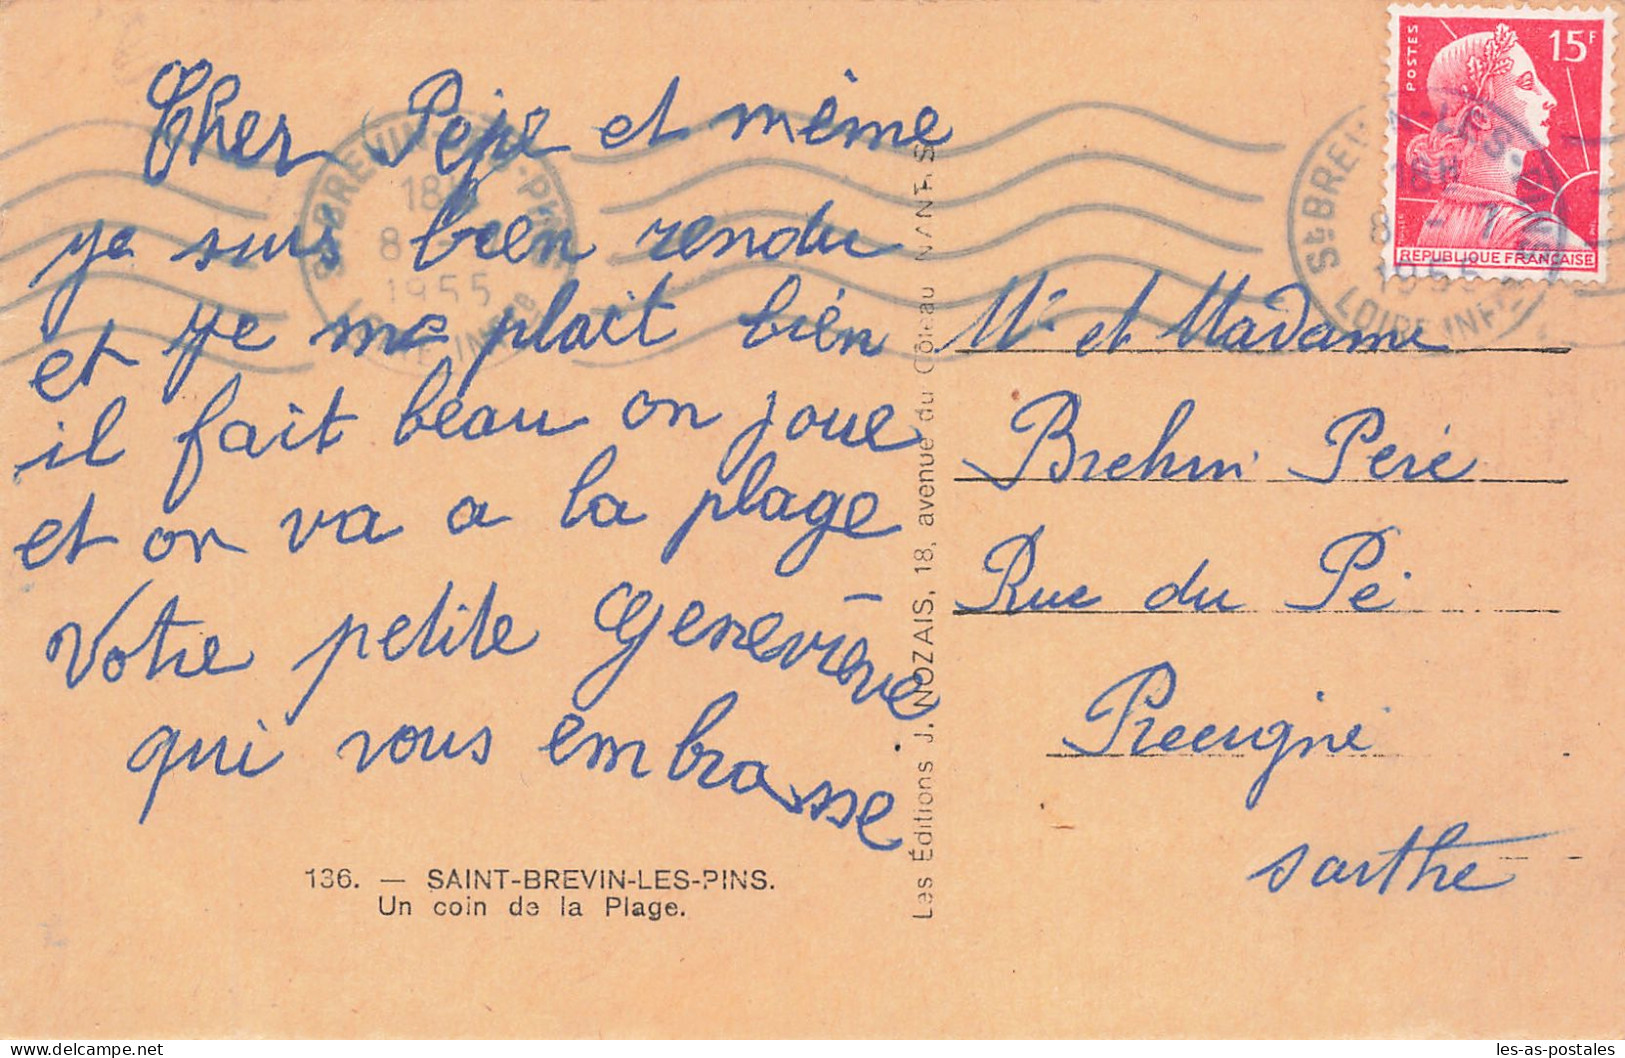 Cher Pépé et même
ye suis bien rendu
et ye me plait bien
il fait beau on joue
et on va a la plage
Votre petite Geneviève
qui vous embrasse
136. — SAINT-BREVIN-LES-PINS.
Un coin de la Plage.
Les Éditions J. NOZAIS, 18, avenue du Coteau NANTES
POSTES
15F
REPUBLIQUE FRANÇAISE
St BREVIN-LES-PINS
18H
8 - 7
1955
LOIRE INFRE
Mr et Madame
Brehin Peré
Rue du Pé
Precigné
sarthe
les-as-postales